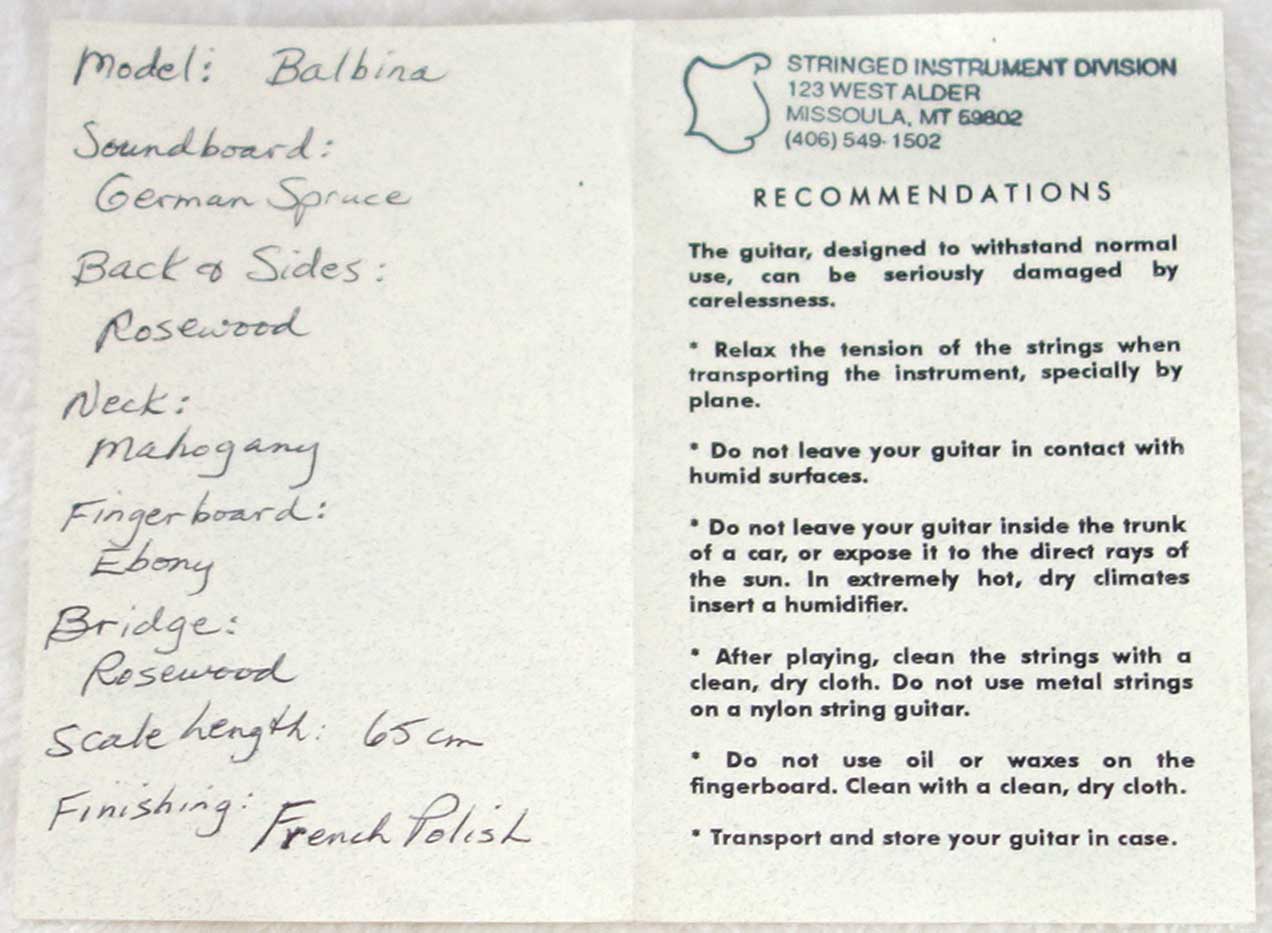 Model: Balbina
Soundboard:
German Spruce
Back & Sides:
Rosewood
Neck:
Mahogany
Fingerboard:
Ebony
Bridge:
Rosewood
Scale Length: 65 cm
Finishing: French Polish
STRINGED INSTRUMENT DIVISION
123 WEST ALDER
MISSOULA, MT 59802
(406) 549-1502
RECOMMENDATIONS
The guitar, designed to withstand normal
use, can be seriously damaged by
carelessness.
* Relax the tension of the strings when
transporting the instrument, specially by
plane.
* Do not leave your guitar in contact with
humid surfaces.
* Do not leave your guitar inside the trunk
of a car, or expose it to the direct rays of
the sun. In extremely hot, dry climates
insert a humidifier.
* After playing, clean the strings with a
clean, dry cloth. Do not use metal strings
on a nylon string guitar.
* Do not use oil or waxes on the
fingerboard. Clean with a clean, dry cloth.
* Transport and store your guitar in case.